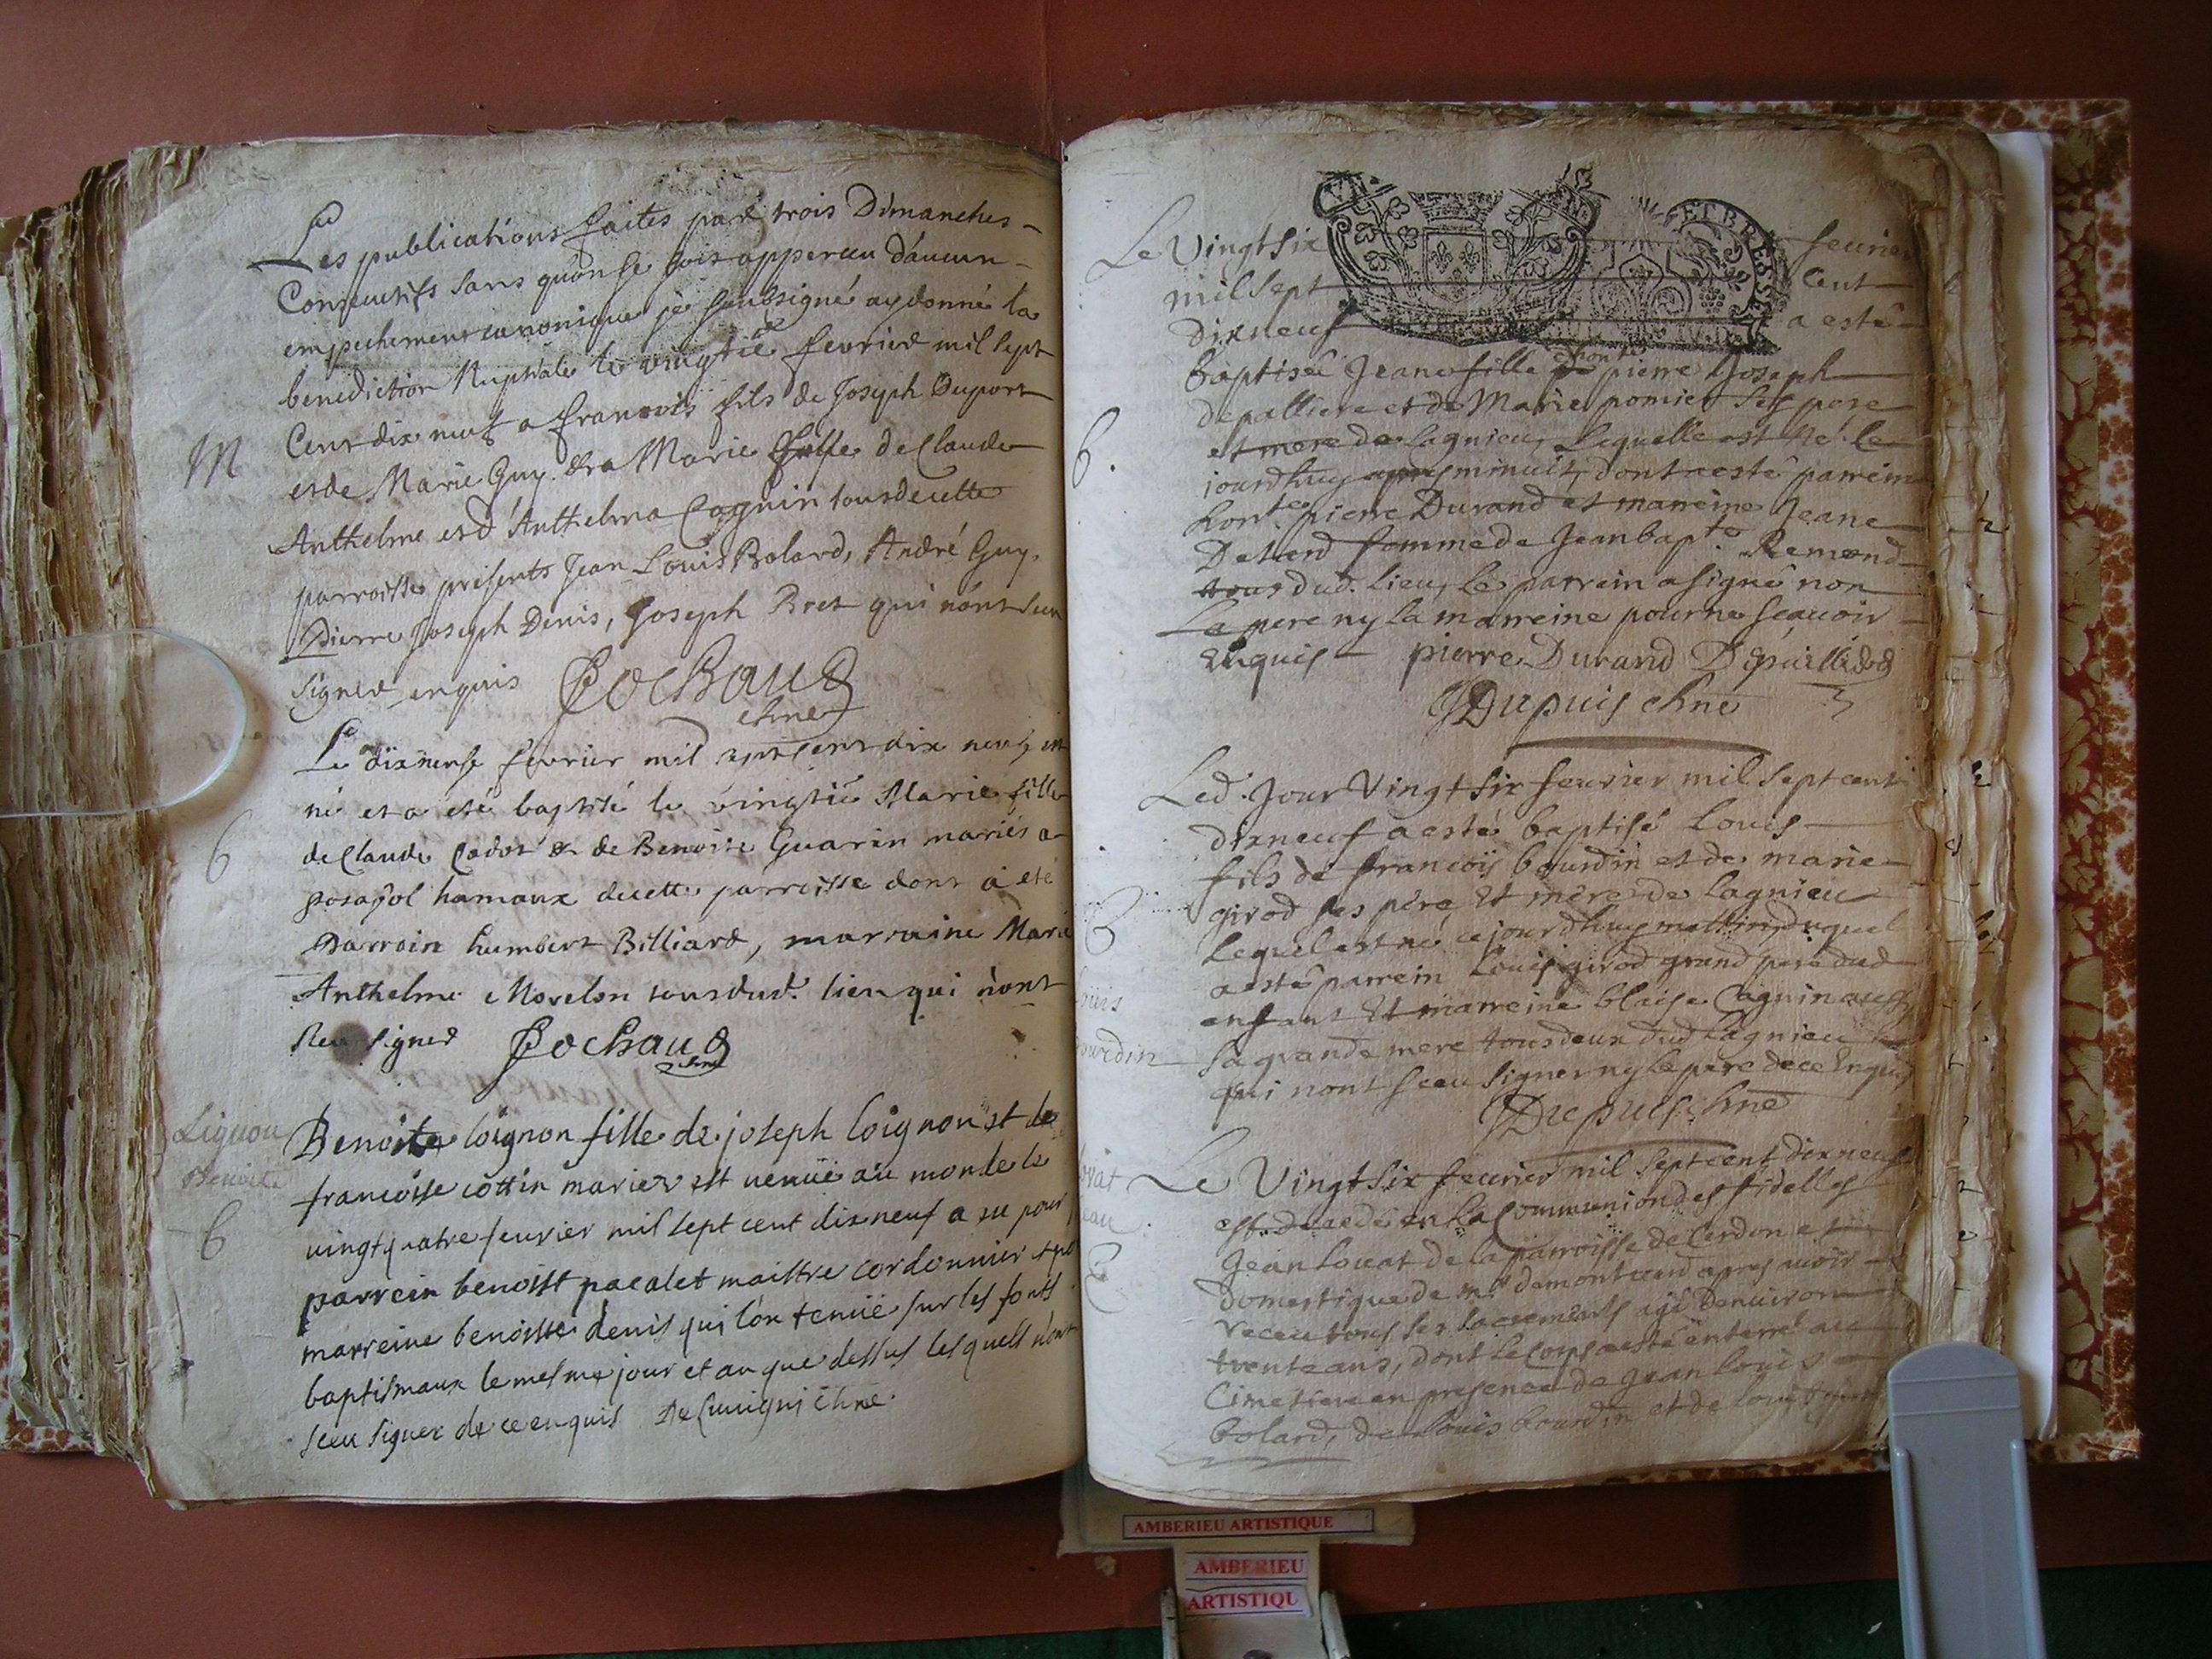 Les publications faites par trois Dimanches
Consecutifs sans qu'on se soit apperceu d'aucun
empechement canonique je soubsigné ay donné la
benediction Nuptiale le vingtiē fevrier mil sept
M
Cent dix neuf a francois fils de Joseph Duport
et de Marie Guy. & a Marie fille de Claude
Anthelme et d'Anthelma Cagnin tous de cette
parroisse presents Jean Louis Bolard, André Guy,
Pierre Joseph Denis, Joseph Bret qui n'ont sceu
signer enquis Cochaud
chne
Le dixneufe fevrier mil sept cent dix neuf est
né et a été baptisé le vingtiē Marie fille
6
de Claude Cador & de Benoite Guarin mariés a
posafol hamaux de cette parroisse dont a eté
Parroin humbert Billiard, marraine Marie
Anthelme Morelon tous dud. lieu qui n'ont
sceu signer Cochaud
chne
Liqnon
Benoite
6
Benoite loignon fille de joseph loignon et de
francoise cottin mariez est venuë au monde le
vingt quatre feurier mil sept cent dix neuf a eu pour
parrein benoist pacalet maistre cordonnier et pr
marreine benoiste denis qui l'on tenüe sur les fonts
baptismaux le mesme jour et an que dessus lesquels n'ont
sceu signer de ce enquis chne
ET BRESSE
Le Vingt six feurier
mil sept Cent
dixneuf a esté
baptisée Jeane fille de honte pierre Joseph
6.
depalliere et de Marie pomier ses pere
et mere de Lagnieu, Laquelle est Né le
jourdhuy apres minuit, dont a esté parrein
honte pierre Durand et marreine Jeane
femme de Jean bapte Remond
tous dud. lieu, Le parrein a signé non
La pere ny la marreine pour ne scauoir
Enquis pierre Durand
Dupuis chne
Led. Jour Vingt six feurier mil sept cent
dixneuf a esté baptisé Louis
fils de francois bourdin et de marie
B
girod ses père Et mère de lagnieu
Lequel est né cejourdhuy mattin, duquel
Louis
a esté parrein Louis girod grand pere dud
enfant Et marreine blaise Cagnin aussy
bourdin
sa grande mere tous deux dud Lagnieu
qui nont sceu signer ny le pere de ce Enquis
Dupuis chne
Le Vingt six feurier mil sept cent dixneuf
est decedé en la Communion des fidelles
Jean Louat de la parroisse de Cerdon et
domestique de mr demontverd apres avoir
receu tous ses sacrements agé Denuiron
trente ans, dont le Corps a esté enterré au
Cimetiere en presence de Jean Louis
bolard, de Louis bourdin et de
AMBERIEU ARTISTIQUE
AMBERIEU
ARTISTIQU